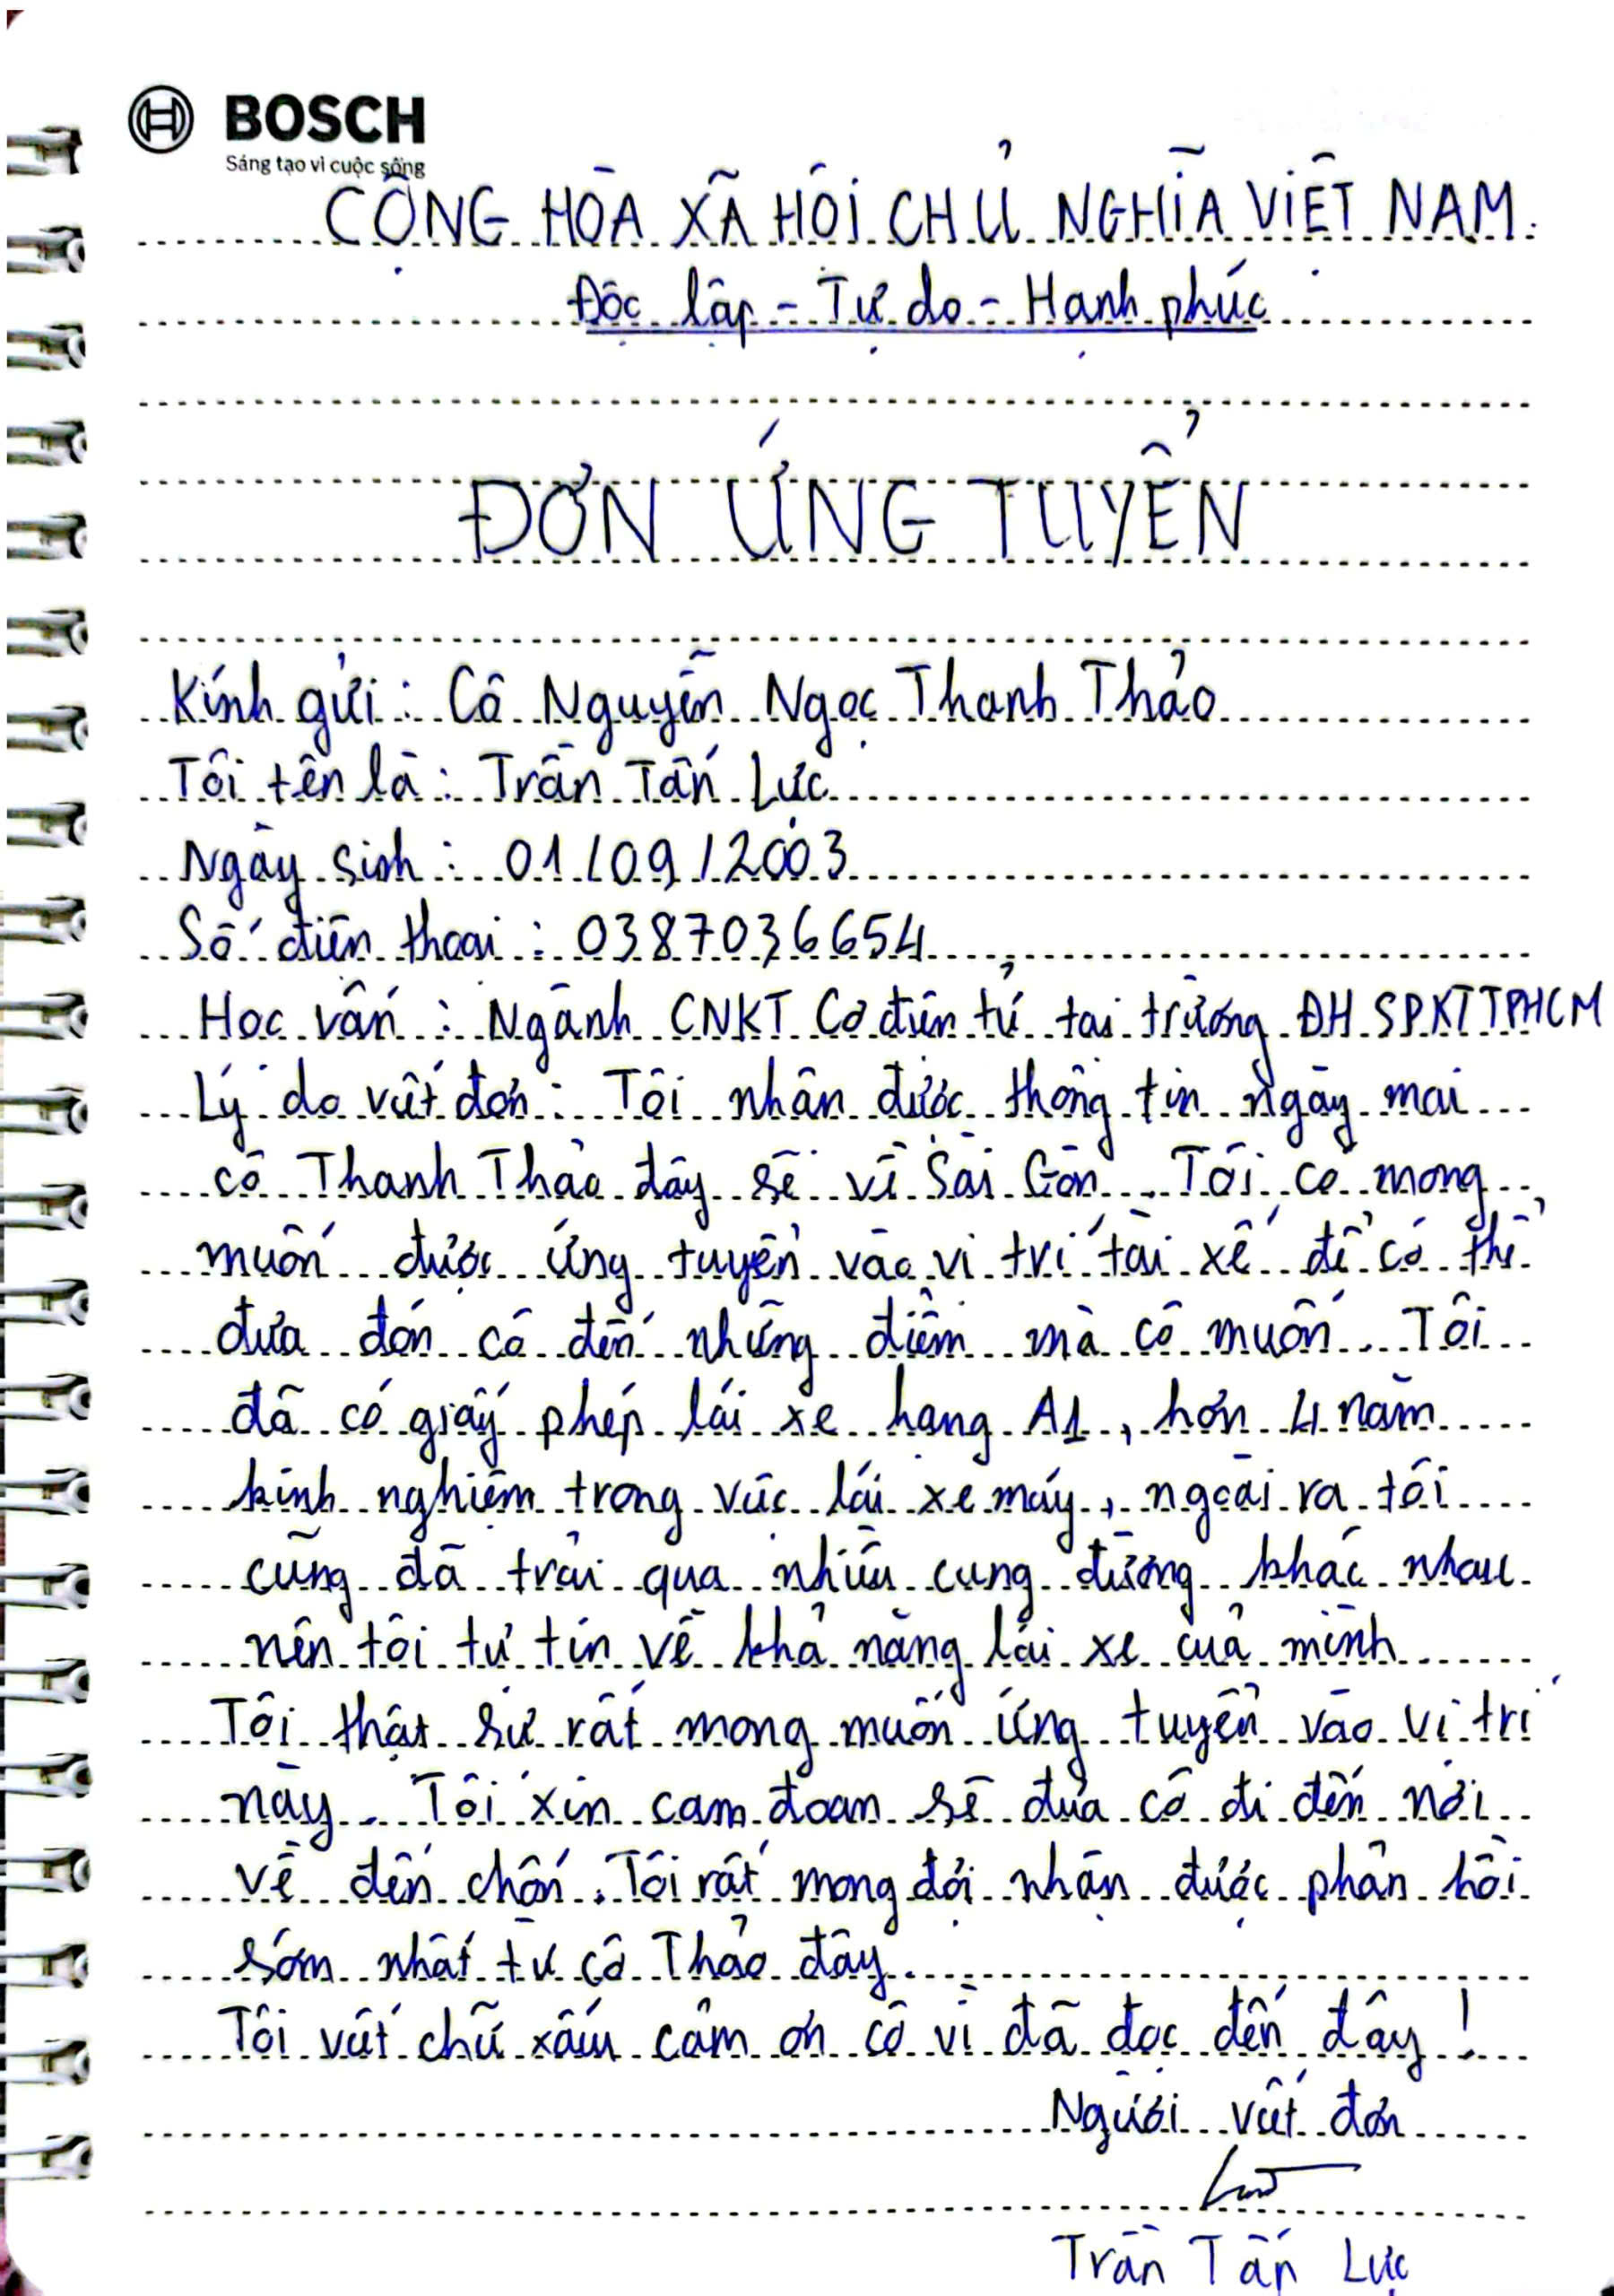 BOSCH
Sáng tạo vì cuộc sống
CỘNG HÒA XÃ HỘI CHỦ NGHĨA VIỆT NAM
Độc lập - Tự do - Hạnh phúc
ĐƠN ỨNG TUYỂN
Kính gửi : Cô Nguyễn Ngọc Thanh Thảo
Tôi tên là : Trần Tấn Lực
Ngày sinh : 01/09/2003
Số điện thoại : 0387036654
Học vấn : Ngành CNKT Cơ điện tử tại trường ĐH SPKTTPHCM
Lý do viết đơn : Tôi nhận được thông tin ngày mai
cô Thanh Thảo đây sẽ về Sài Gòn. Tôi có mong
muốn được ứng tuyển vào vị trí tài xế để có thể
đưa đón cô đến những điểm mà cô muốn. Tôi
đã có giấy phép lái xe hạng A1, hơn 4 năm
kinh nghiệm trong vực lái xe máy, ngoài ra tôi
cũng đã trải qua nhiều cung đường khác nhau
nên tôi tự tin về khả năng lái xe của mình
Tôi thật sự rất mong muốn ứng tuyển vào vị trí
này. Tôi xin cam đoan sẽ đưa cô đi đến nơi
về đến chốn. Tôi rất mong đợi nhận được phản hồi
sớm nhất từ cô Thảo đây.
Tôi viết chữ xấu cảm ơn cô vì đã đọc đến đây !
Người viết đơn
Trần Tấn Lực